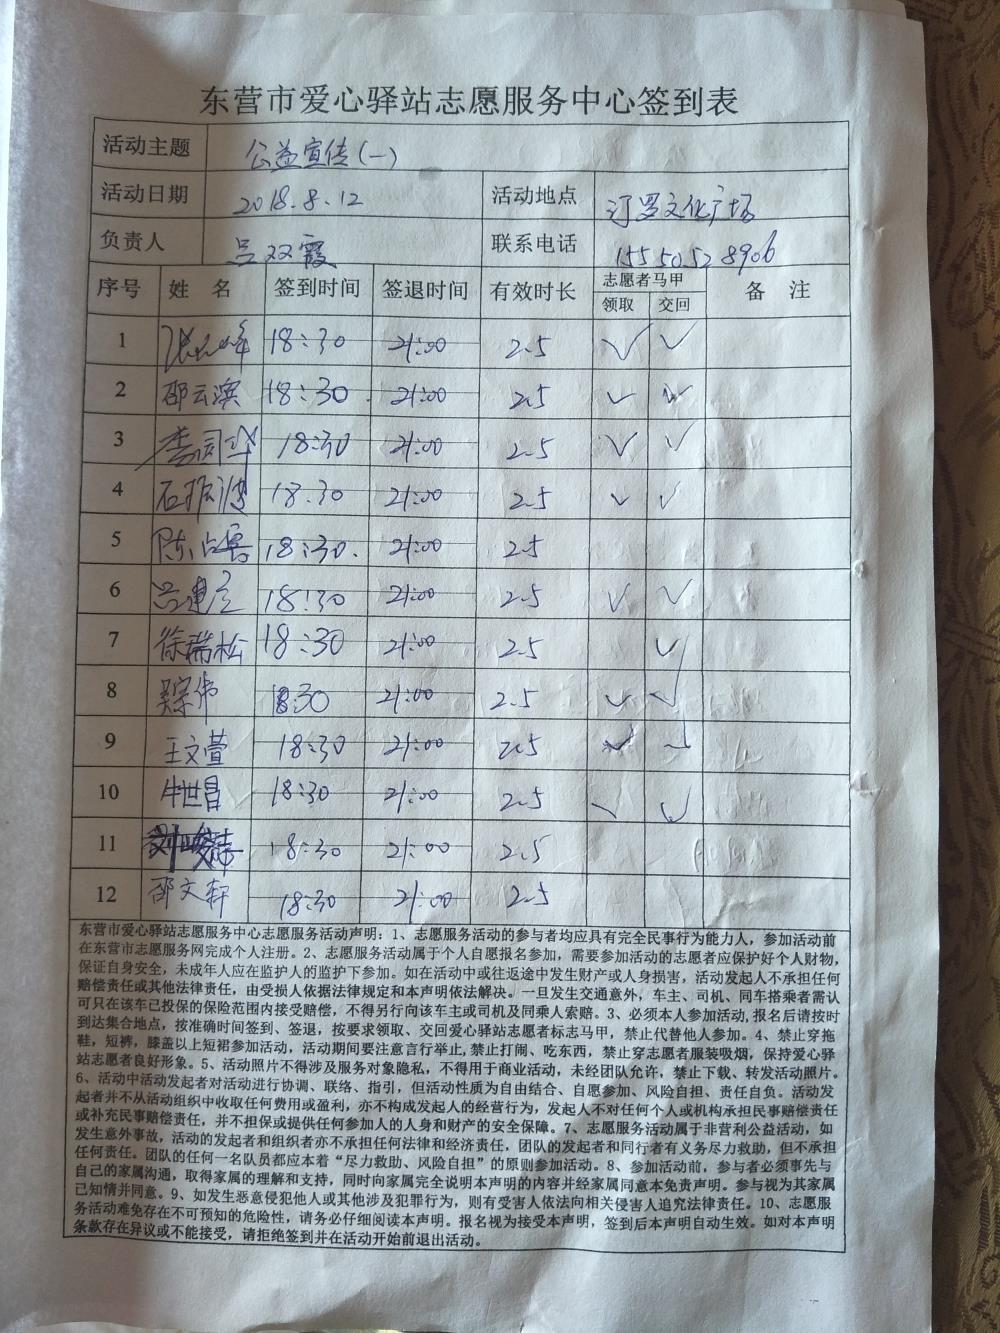 东营市爱心驿站志愿服务中心签到表
活动主题 公益宣传(一)
活动日期 2018.8.12 活动地点 文化广场
负责人 吕双霞 联系电话 15550528906
序号 姓 名 签到时间 签退时间 有效时长 志愿者马甲 备 注
领取 交回
1 18:30 21:00 2.5 ✓ ✓
2 邵云滨 18:30 21:00 2.5 ✓ ✓
3 18:30 21:00 2.5 ✓ ✓
4 石振波 18:30 21:00 2.5 ✓ ✓
5 18:30 21:00 2.5
6 吕建立 18:30 21:00 2.5 ✓ ✓
7 徐瑞松 18:30 21:00 2.5 ✓
8 吴宗伟 18:30 21:00 2.5 ✓ ✓
9 王文萱 18:30 21:00 2.5 ✓ ✓
10 牛世昌 18:30 21:00 2.5 ✓ ✓
11 18:30 21:00 2.5
12 邵文轩 18:30 21:00 2.5
东营市爱心驿站志愿服务中心志愿服务活动声明：1、志愿服务活动的参与者均应具有完全民事行为能力人，参加活动前
在东营市志愿服务网完成个人注册。2、志愿服务活动属于个人自愿报名参加，需要参加活动的志愿者应保护好个人财物，
保证自身安全，未成年人应在监护人的监护下参加。如在活动中或往返途中发生财产或人身损害，活动发起人不承担任何
赔偿责任或其他法律责任，由受损人依据法律规定和本声明依法解决。一旦发生交通意外，车主、司机、同车搭乘者需认
可只在该车已投保的保险范围内接受赔偿，不得另行向该车主或司机及同乘人索赔。3、必须本人参加活动,报名后请按时
到达集合地点，按准确时间签到、签退，按要求领取、交回爱心驿站志愿者标志马甲，禁止代替他人参加。4、禁止穿拖
鞋，短裤，膝盖以上短裙参加活动，活动期间要注意言行举止,禁止打闹、吃东西，禁止穿志愿者服装吸烟，保持爱心驿
站志愿者良好形象。5、活动照片不得涉及服务对象隐私，不得用于商业活动，未经团队允许，禁止下载、转发活动照片。
6、活动中活动发起者对活动进行协调、联络、指引，但活动性质为自由结合、自愿参加、风险自担、责任自负。活动发
起者并不从活动组织中收取任何费用或盈利，亦不构成发起人的经营行为，发起人不对任何个人或机构承担民事赔偿责任
或补充民事赔偿责任，并不担保或提供任何参加人的人身和财产的安全保障。7、志愿服务活动属于非营利公益活动，如
发生意外事故，活动的发起者和组织者亦不承担任何法律和经济责任，团队的发起者和同行者有义务尽力救助，但不承担
任何责任。团队的任何一名队员都应本着“尽力救助、风险自担”的原则参加活动。8、参加活动前，参与者必须事先与
自己的家属沟通，取得家属的理解和支持，同时向家属完全说明本声明的内容并经家属同意本免责声明。参与视为其家属
已知情并同意。9、如发生恶意侵犯他人或其他涉及犯罪行为，则有受害人依法向相关侵害人追究法律责任。10、志愿服
务活动难免存在不可预知的危险性，请务必仔细阅读本声明。报名视为接受本声明，签到后本声明自动生效。如对本声明
条款存在异议或不能接受，请拒绝签到并在活动开始前退出活动。